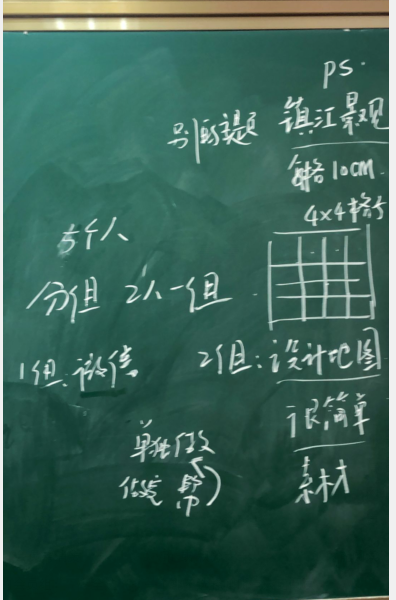 PS.
镇江景观
每格10cm.
4×4格子
5个人
分组 2人一组
1组:微信
2组:设计地图
很简单
单独做
素材